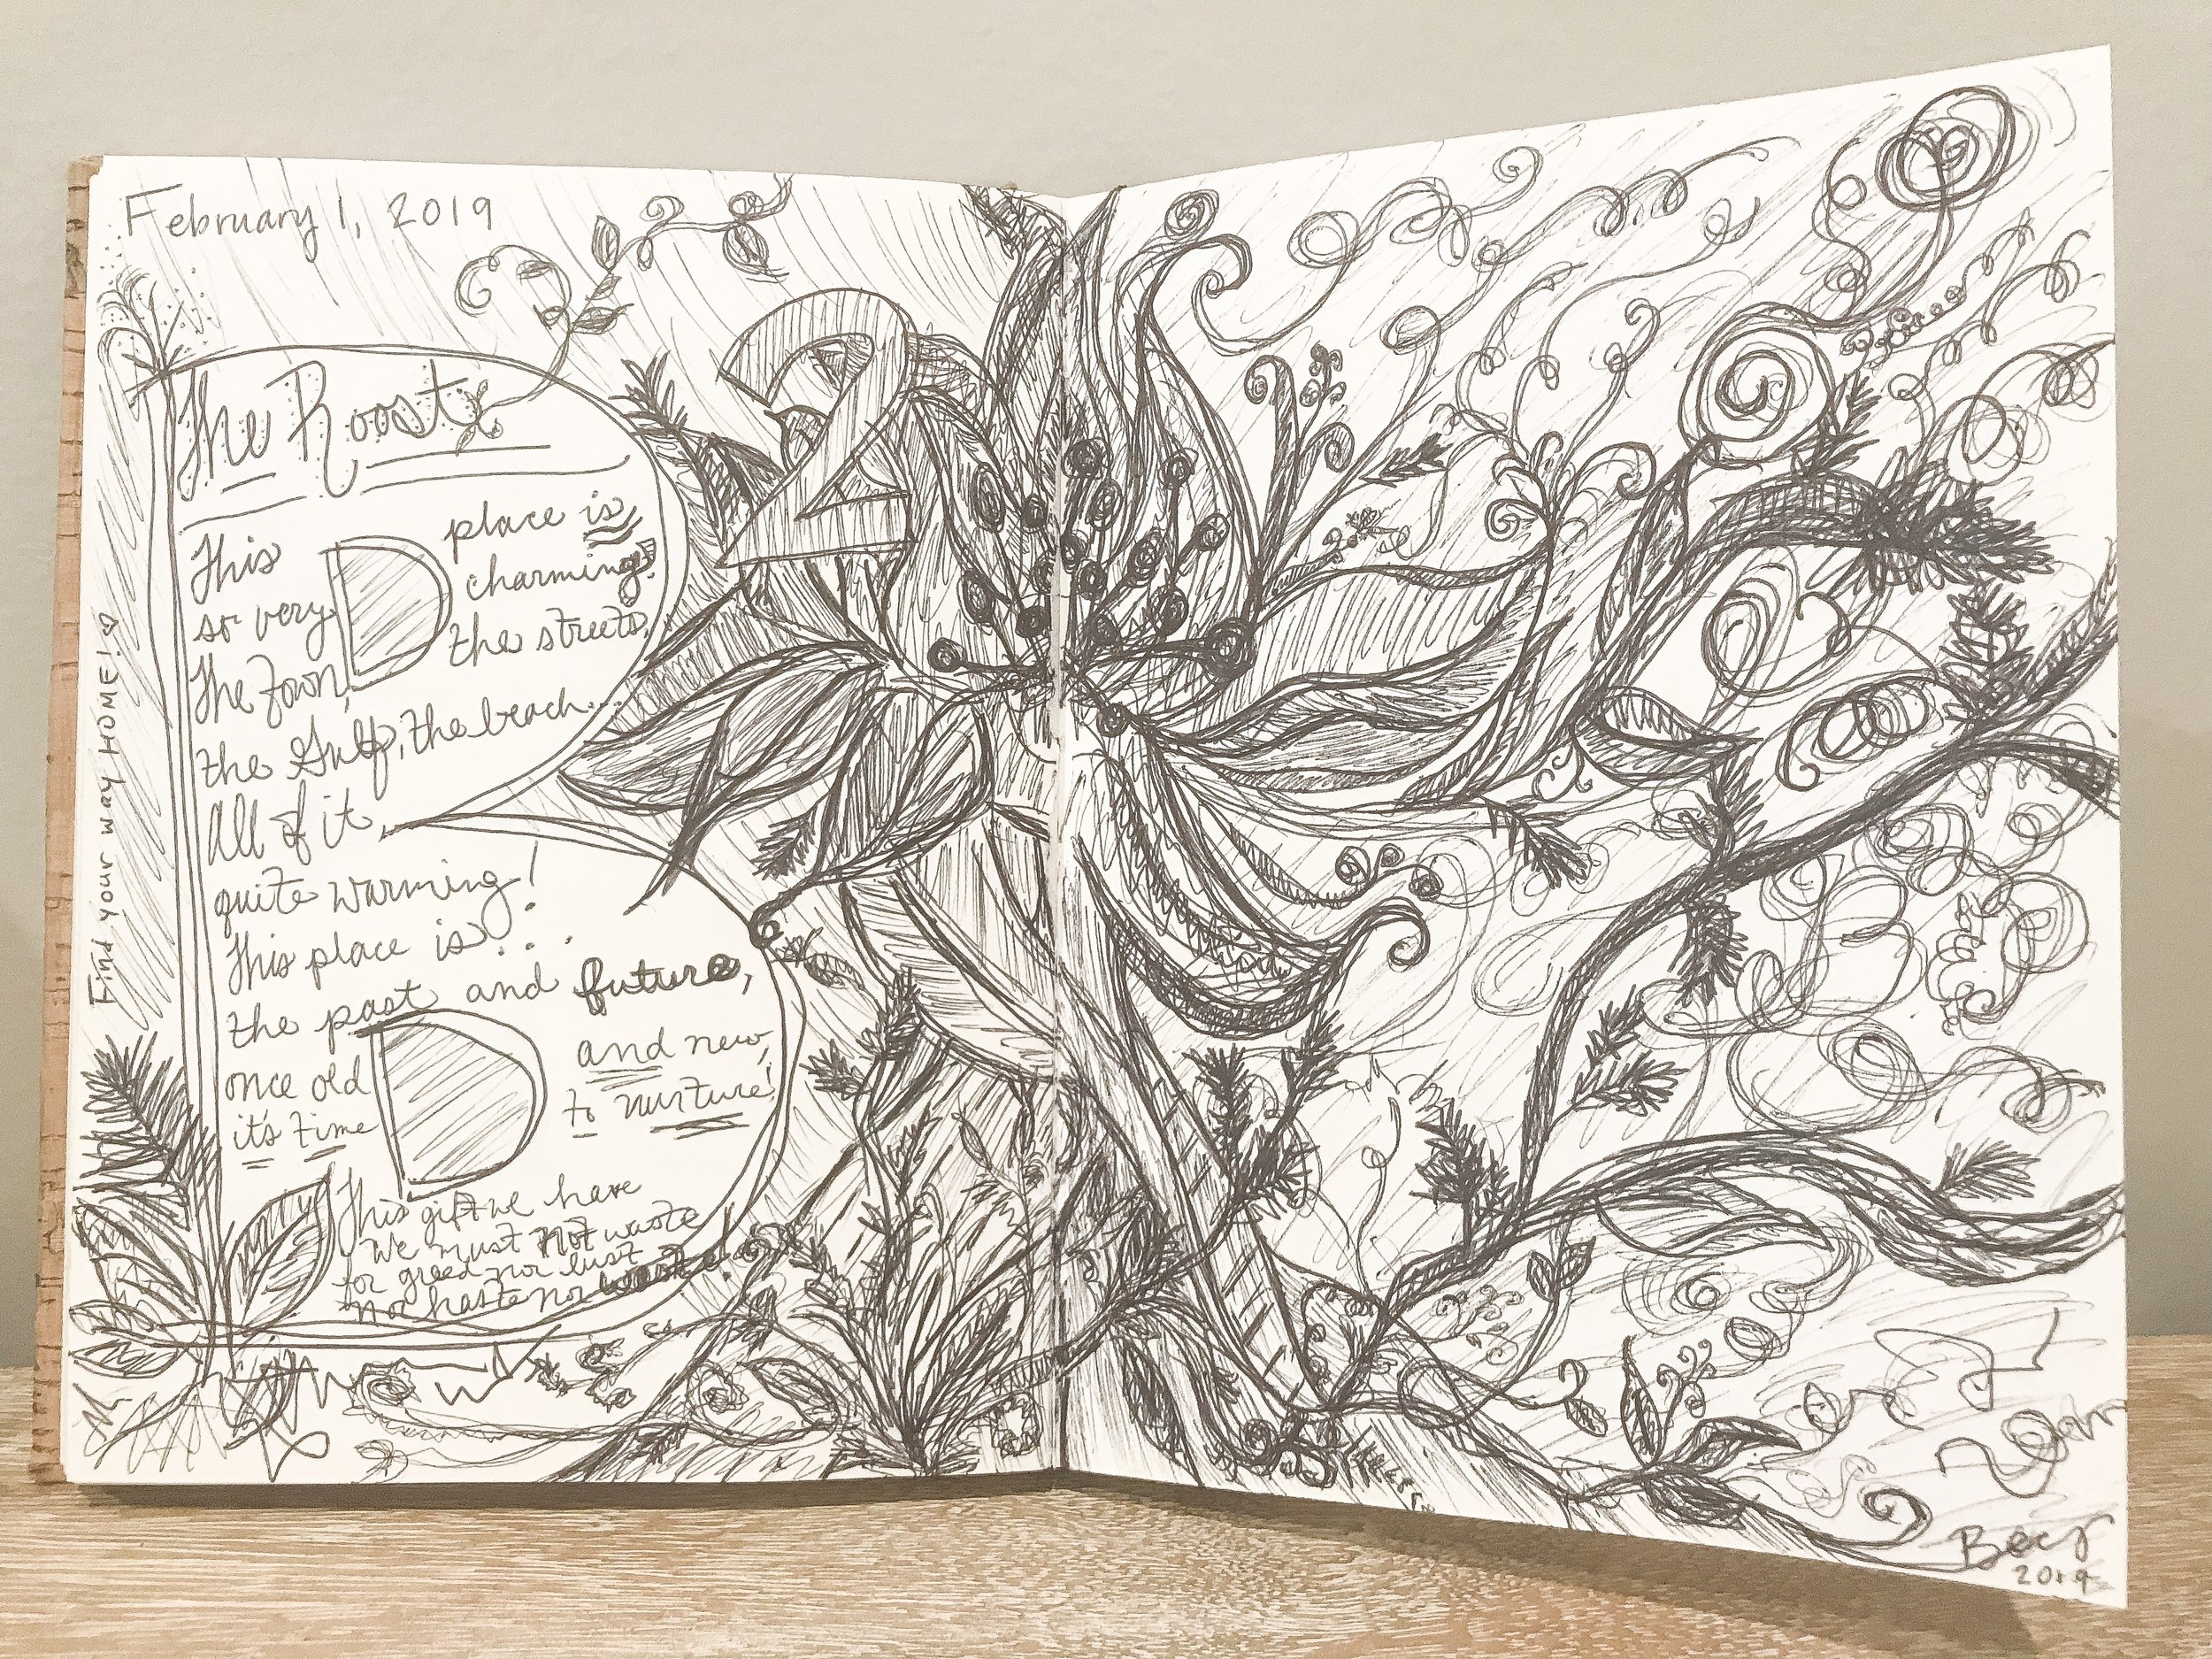 February 1, 2019
The Roost
This place is
so very charming!
The town, the streets,
the Gulf, the beach...
All of it,
quite warming!
This place is...
the past and future,
once old and new,
it's time to nurture!
This gift we have
we must not waste
for greed nor lust
nor haste nor waste!
Find your way HOME!
B
2
Becs
2019